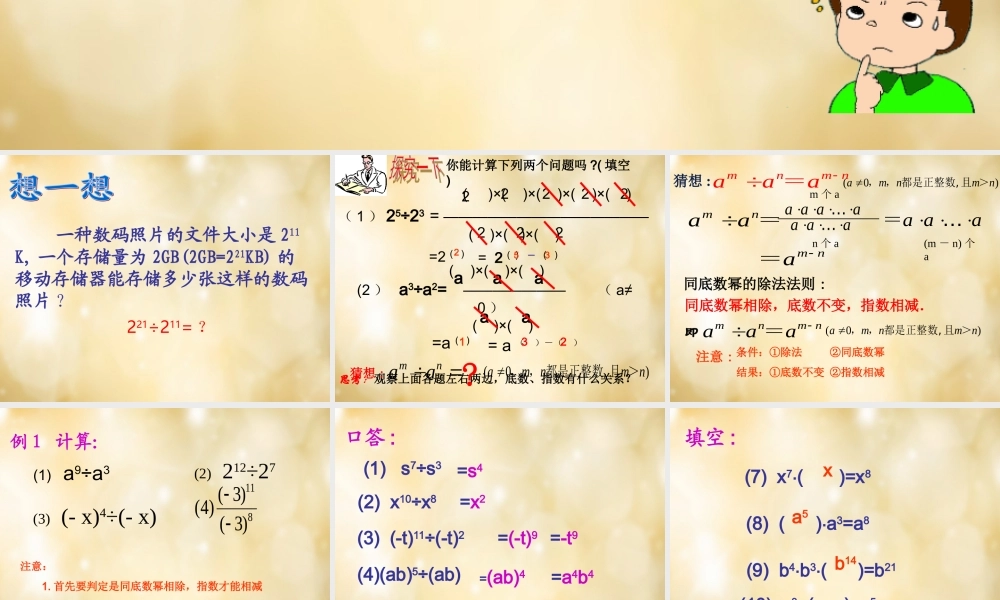 想一想
一种数码照片的文件大小是 2¹¹
K, 一个存储量为 2GB(2GB=2²¹KB) 的
移动存储器能存储多少张这样的数码
照片 ?
2²¹÷2¹¹= ?
探究一下
你能计算下列两个问题吗 ?( 填空
)
( 2 )×( 2 )×( 2 )×( 2 )×( 2 )
( 1 ) 2⁵÷2³ =
( 2 )×( 2 )×( 2 )
=2 ( 2 ) = 2 ( 5 ) － ( 3 )
( a )×( a )×( a )
(2 ) a³÷a²= ( a≠
0 )
( a )×( a )
=a ( 1 ) = a ( 3 ) － ( 2 )
猜想: aᵐ÷aⁿ=? (a≠0, m, n都是正整数, 且m＞n)
思考: 观察上面各题左右两边，底数、指数有什么关系?
猜想 : aᵐ÷aⁿ=aᵐ⁻ⁿ (a≠0, m, n都是正整数, 且m＞n)
m 个 a
aᵐ÷aⁿ= a·a·a·…·a / a·a·…·a =a·a·…·a
n 个 a (m － n) 个
a
=aᵐ⁻ⁿ
同底数幂的除法法则 :
同底数幂相除，底数不变，指数相减.
即 aᵐ÷aⁿ=aᵐ⁻ⁿ (a≠0, m, n都是正整数, 且m＞n)
注意 : 条件: ①除法 ②同底数幂
结果: ①底数不变 ②指数相减
例 1 计算:
(1) a⁹÷a³ (2) 2¹²÷2⁷
(3) (- x)⁴÷(- x) (4) (-3)¹¹ / (-3)⁸
注意:
1. 首先要判定是同底数幂相除，指数才能相减
口答 :
(1) s⁷÷s³ =s⁴
(2) x¹⁰÷x⁸ =x²
(3) (-t)¹¹÷(-t)² =(-t)⁹ =-t⁹
(4)(ab)⁵÷(ab) =(ab)⁴ =a⁴b⁴
填空 :
(7) x⁷·( x )=x⁸
(8) ( a⁵ )·a³=a⁸
(9) b⁴·b³·( b¹⁴ )=b²¹